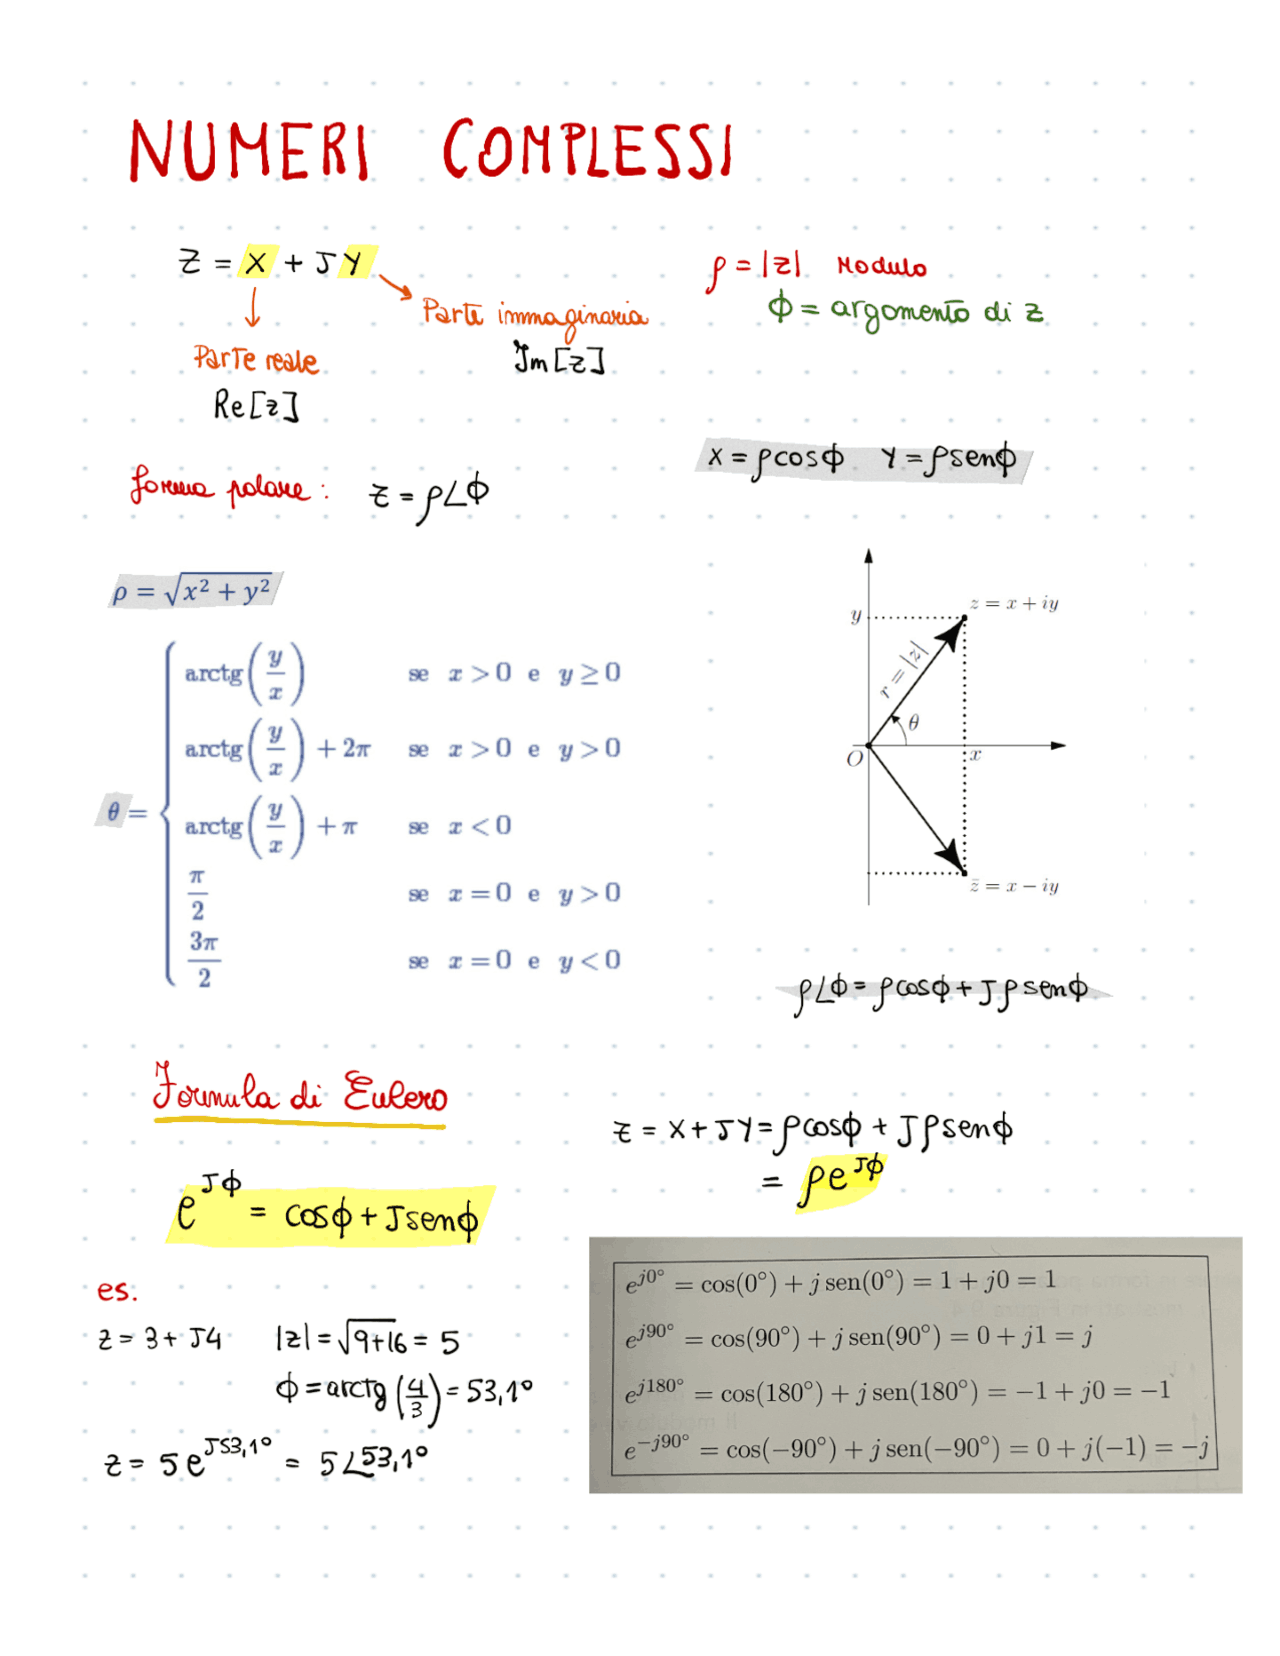 NUMERI COMPLESSI
z = x + Jy
ρ = |z| Modulo
ϕ = argomento di z
Parte immaginaria
Im[z]
Parte reale
Re[z]
x = ρcosϕ y = ρsenϕ
forma polare: z = ρ∠ϕ
ρ = √(x² + y²)
θ = {
arctg(y/x) se x > 0 e y ≥ 0
arctg(y/x) + 2π se x > 0 e y > 0
arctg(y/x) + π se x < 0
π/2 se x = 0 e y > 0
3π/2 se x = 0 e y < 0
z = x + iy
y
r = |z|
θ
O
x
z̄ = x − iy
ρ∠ϕ = ρcosϕ + Jρsenϕ
Formula di Eulero
e^Jϕ = cosϕ + Jsenϕ
z = x + Jy = ρcosϕ + Jρsenϕ
= ρe^Jϕ
es.
z = 3 + J4 |z| = √9+16 = 5
ϕ = arctg(4/3) = 53,1°
z = 5e^J53,1° = 5∠53,1°
e^j0° = cos(0°) + j sen(0°) = 1 + j0 = 1
e^j90° = cos(90°) + j sen(90°) = 0 + j1 = j
e^j180° = cos(180°) + j sen(180°) = −1 + j0 = −1
e^−j90° = cos(−90°) + j sen(−90°) = 0 + j(−1) = −j